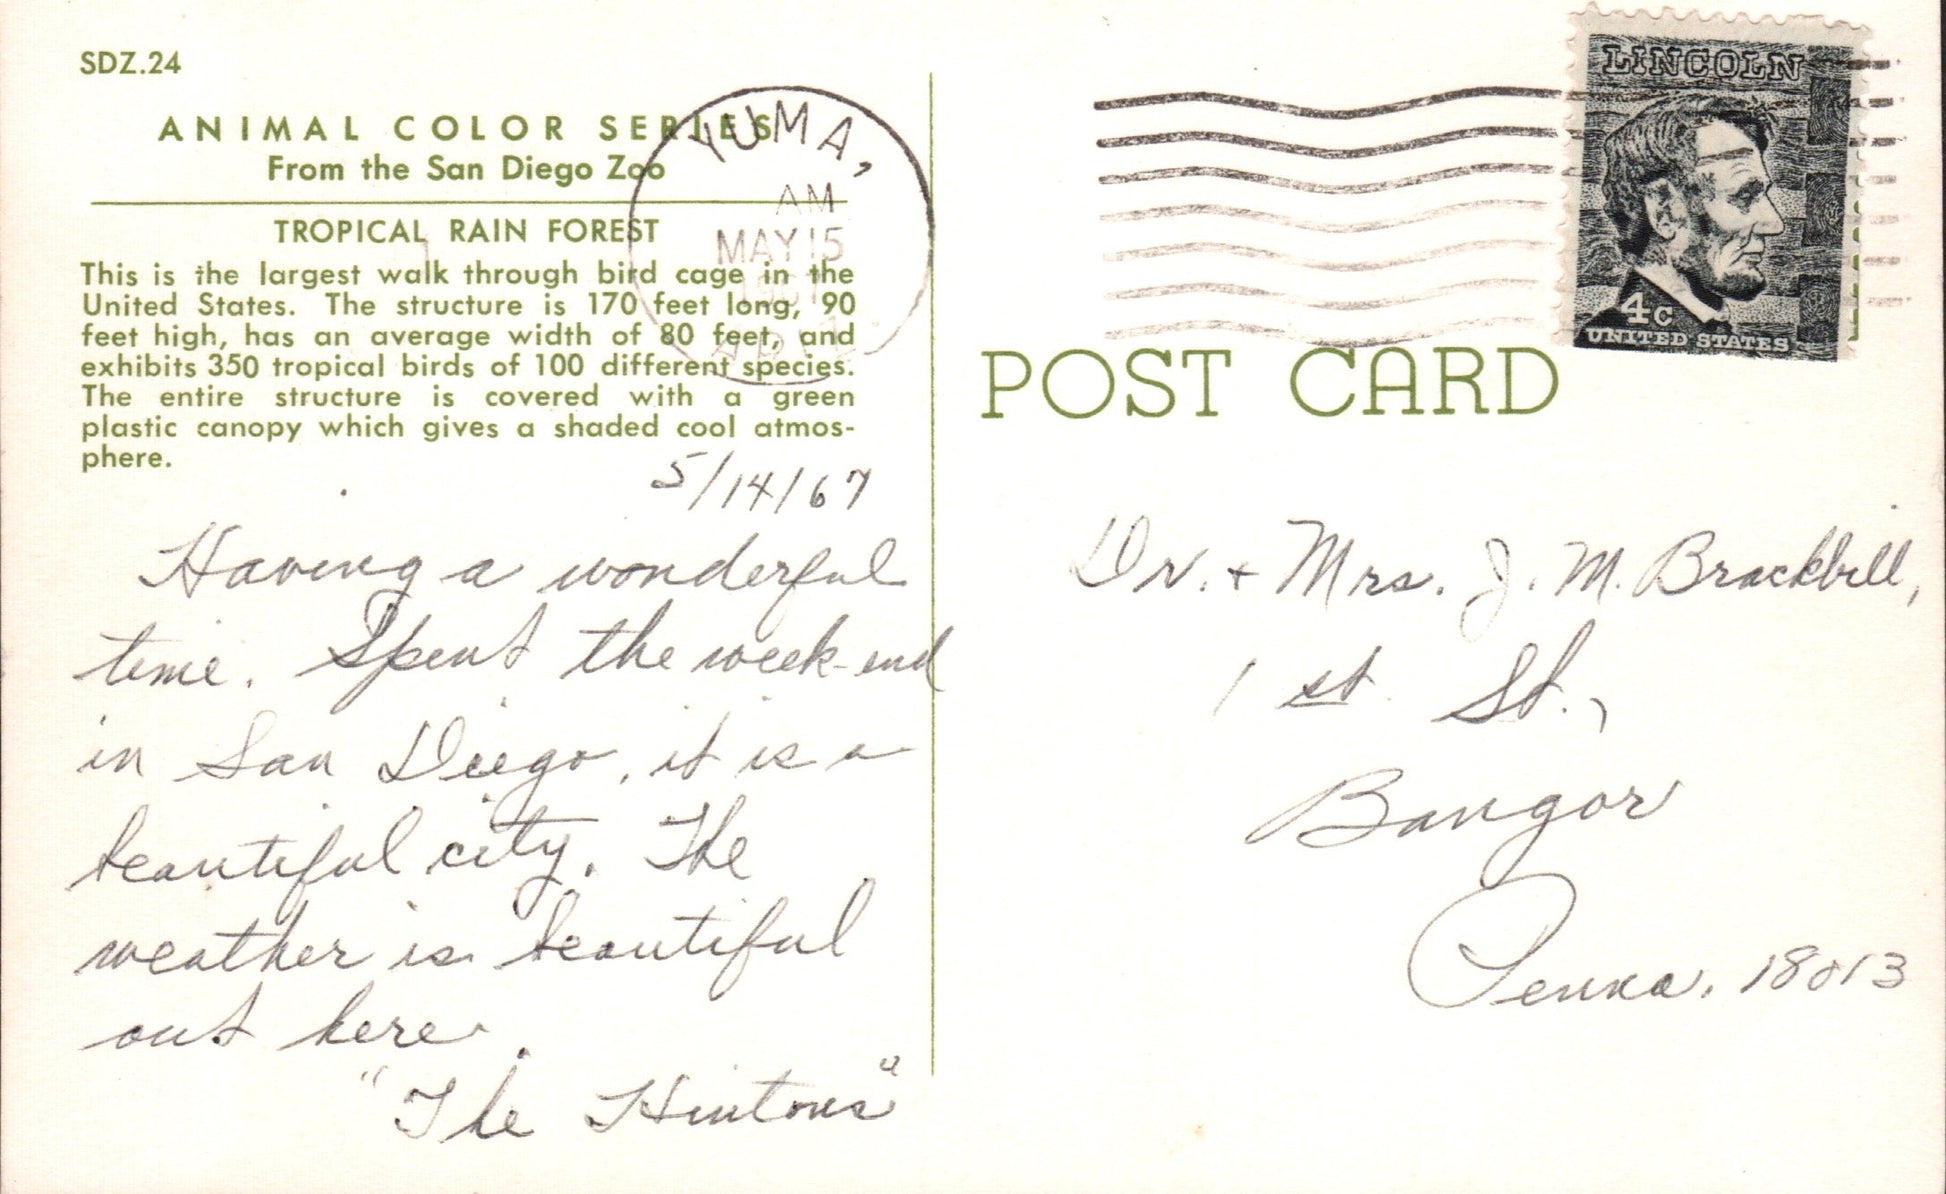 SDZ.24
ANIMAL COLOR SERIES
From the San Diego Zoo
TROPICAL RAIN FOREST
This is the largest walk through bird cage in the
United States. The structure is 170 feet long, 90
feet high, has an average width of 80 feet, and
exhibits 350 tropical birds of 100 different species.
The entire structure is covered with a green
plastic canopy which gives a shaded cool atmos-
phere.
YUMA,
AM
MAY 15
1967
ARIZ.
5/14/67
Having a wonderful
time. Spent the week-end
in San Diego, it is a
beautiful city. The
weather is beautiful
out here.
"The Hintons"
LINCOLN
4c
UNITED STATES
POST CARD
Dr. + Mrs. J. M. Brackbill,
1st St.,
Bangor
Penna. 18013